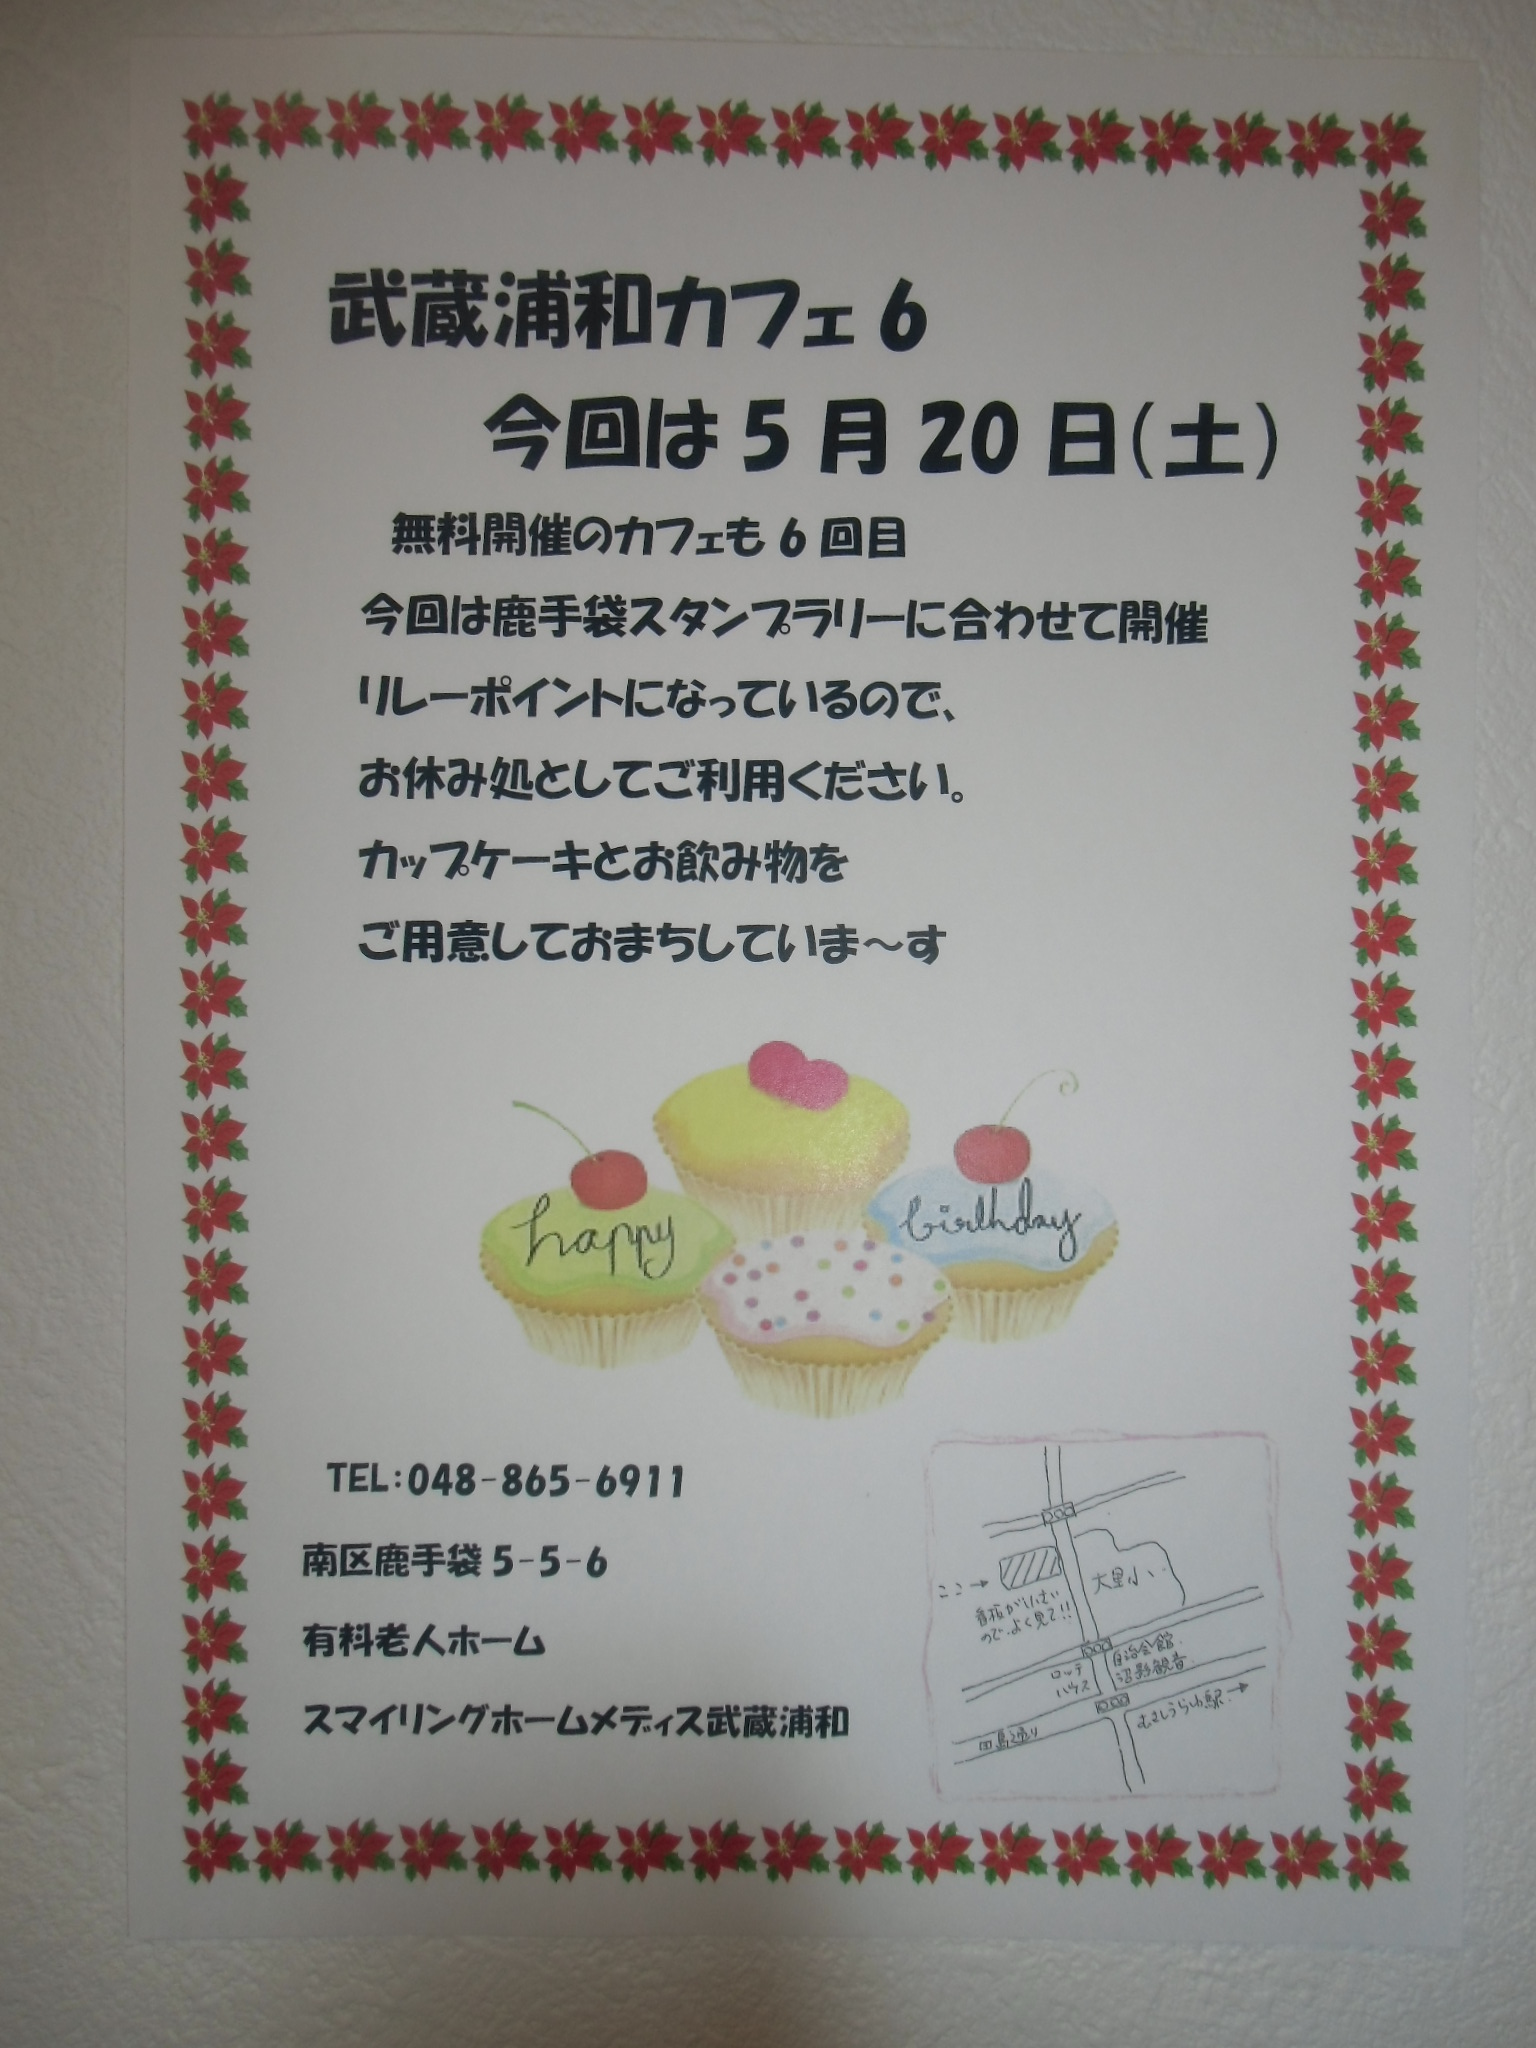 武蔵浦和カフェ6
今回は5月20日(土)
無料開催のカフェも6回目
今回は鹿手袋スタンプラリーに合わせて開催
リレーポイントになっているので、
お休み処としてご利用ください。
カップケーキとお飲み物を
ご用意しておまちしていま～す
happy
birthday
TEL:048-865-6911
南区鹿手袋5-5-6
有料老人ホーム
スマイリングホームメディス武蔵浦和
ここ→
大里小
看板がちいさい
ので、よく見て!!
自治会館
沼影観音
ロッテ
ハウス
むさしうらわ駅→
田島通り